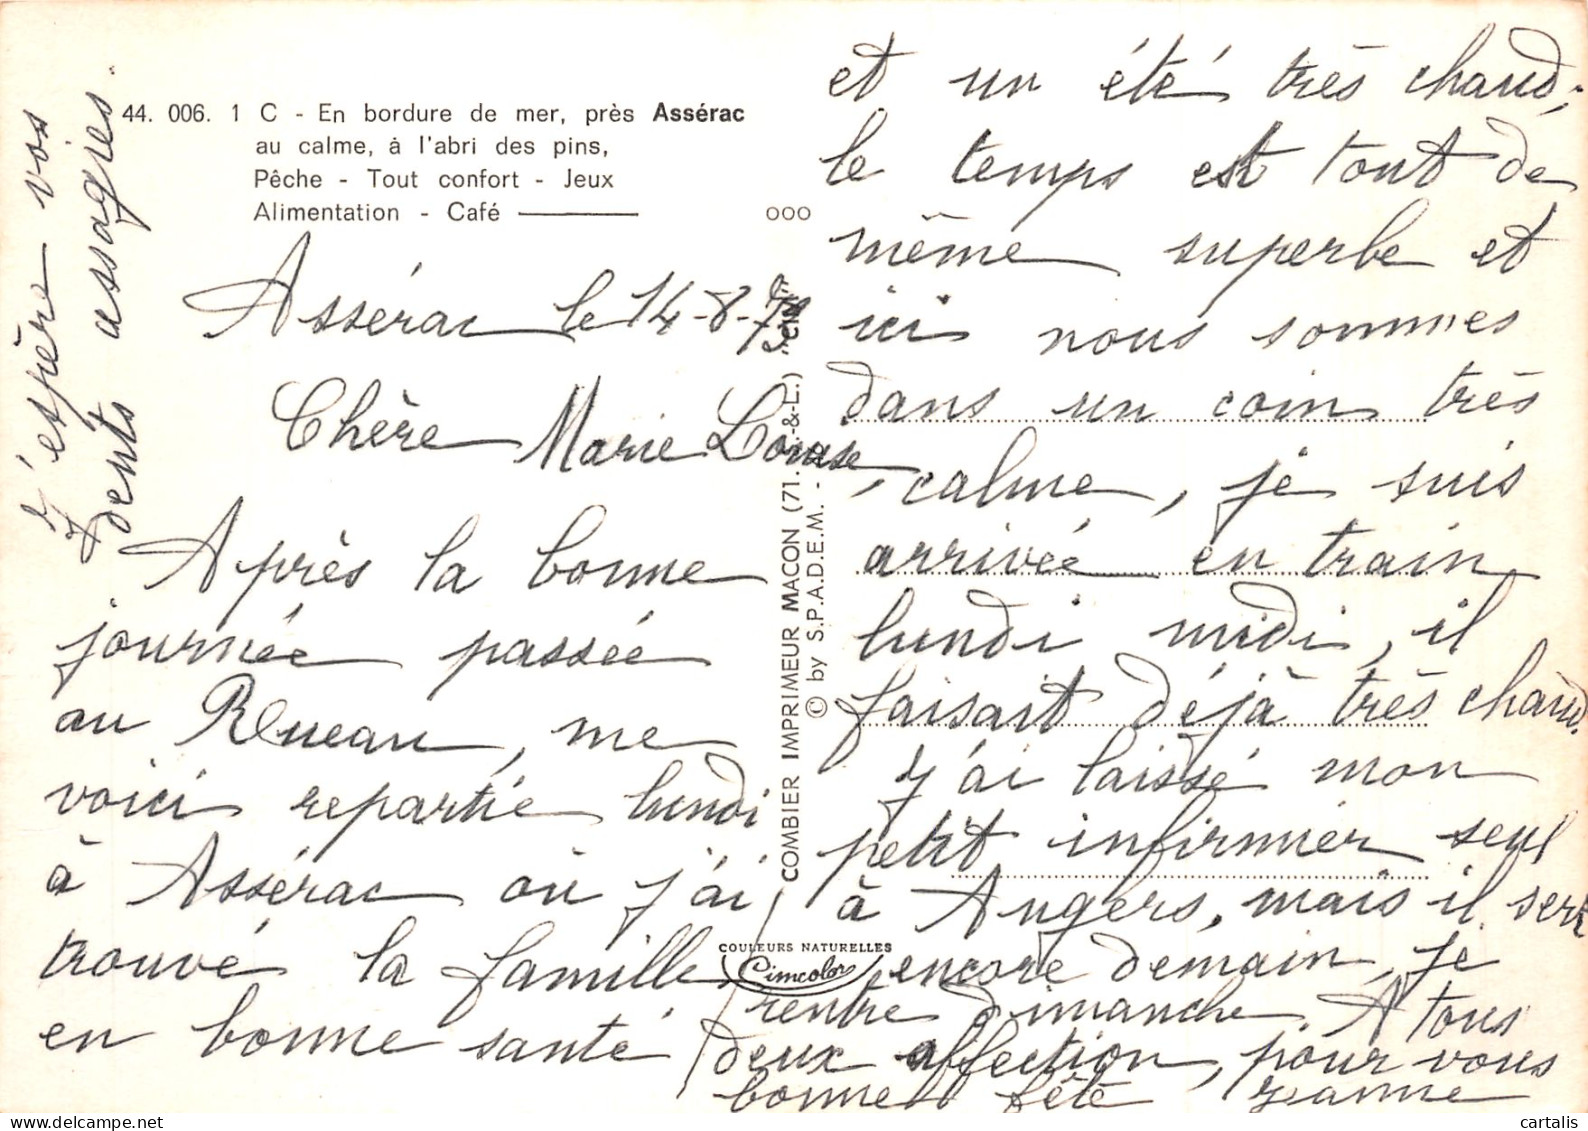 44. 006. 1 C - En bordure de mer, près Assérac
au calme, à l'abri des pins,
Pêche - Tout confort - Jeux
Alimentation - Café
Assérac le 14-8-75
Chère Marie Louise,
Après la bonne
journée passée
au Rueau, me
voici repartie lundi
à Assérac où j'ai
trouvé la famille
en bonne santé
et un été très chaud,
le temps est tout de
même superbe et
ici nous sommes
dans un coin très
calme, je suis
arrivée en train
lundi midi, il
faisait déjà très chaud.
J'ai laissé mon
petit infirmier seul
à Angers, mais il sera
encore demain, je
rentre dimanche. A tous
deux affection, pour vous
bonne fête Jeanne
J'espère vos
dents assagies.
COMBIER IMPRIMEUR MACON (71.-S.-&-L.) "CIM"
© by S.P.A.D.E.M. -
COULEURS NATURELLES
Cimcolor
cartalis